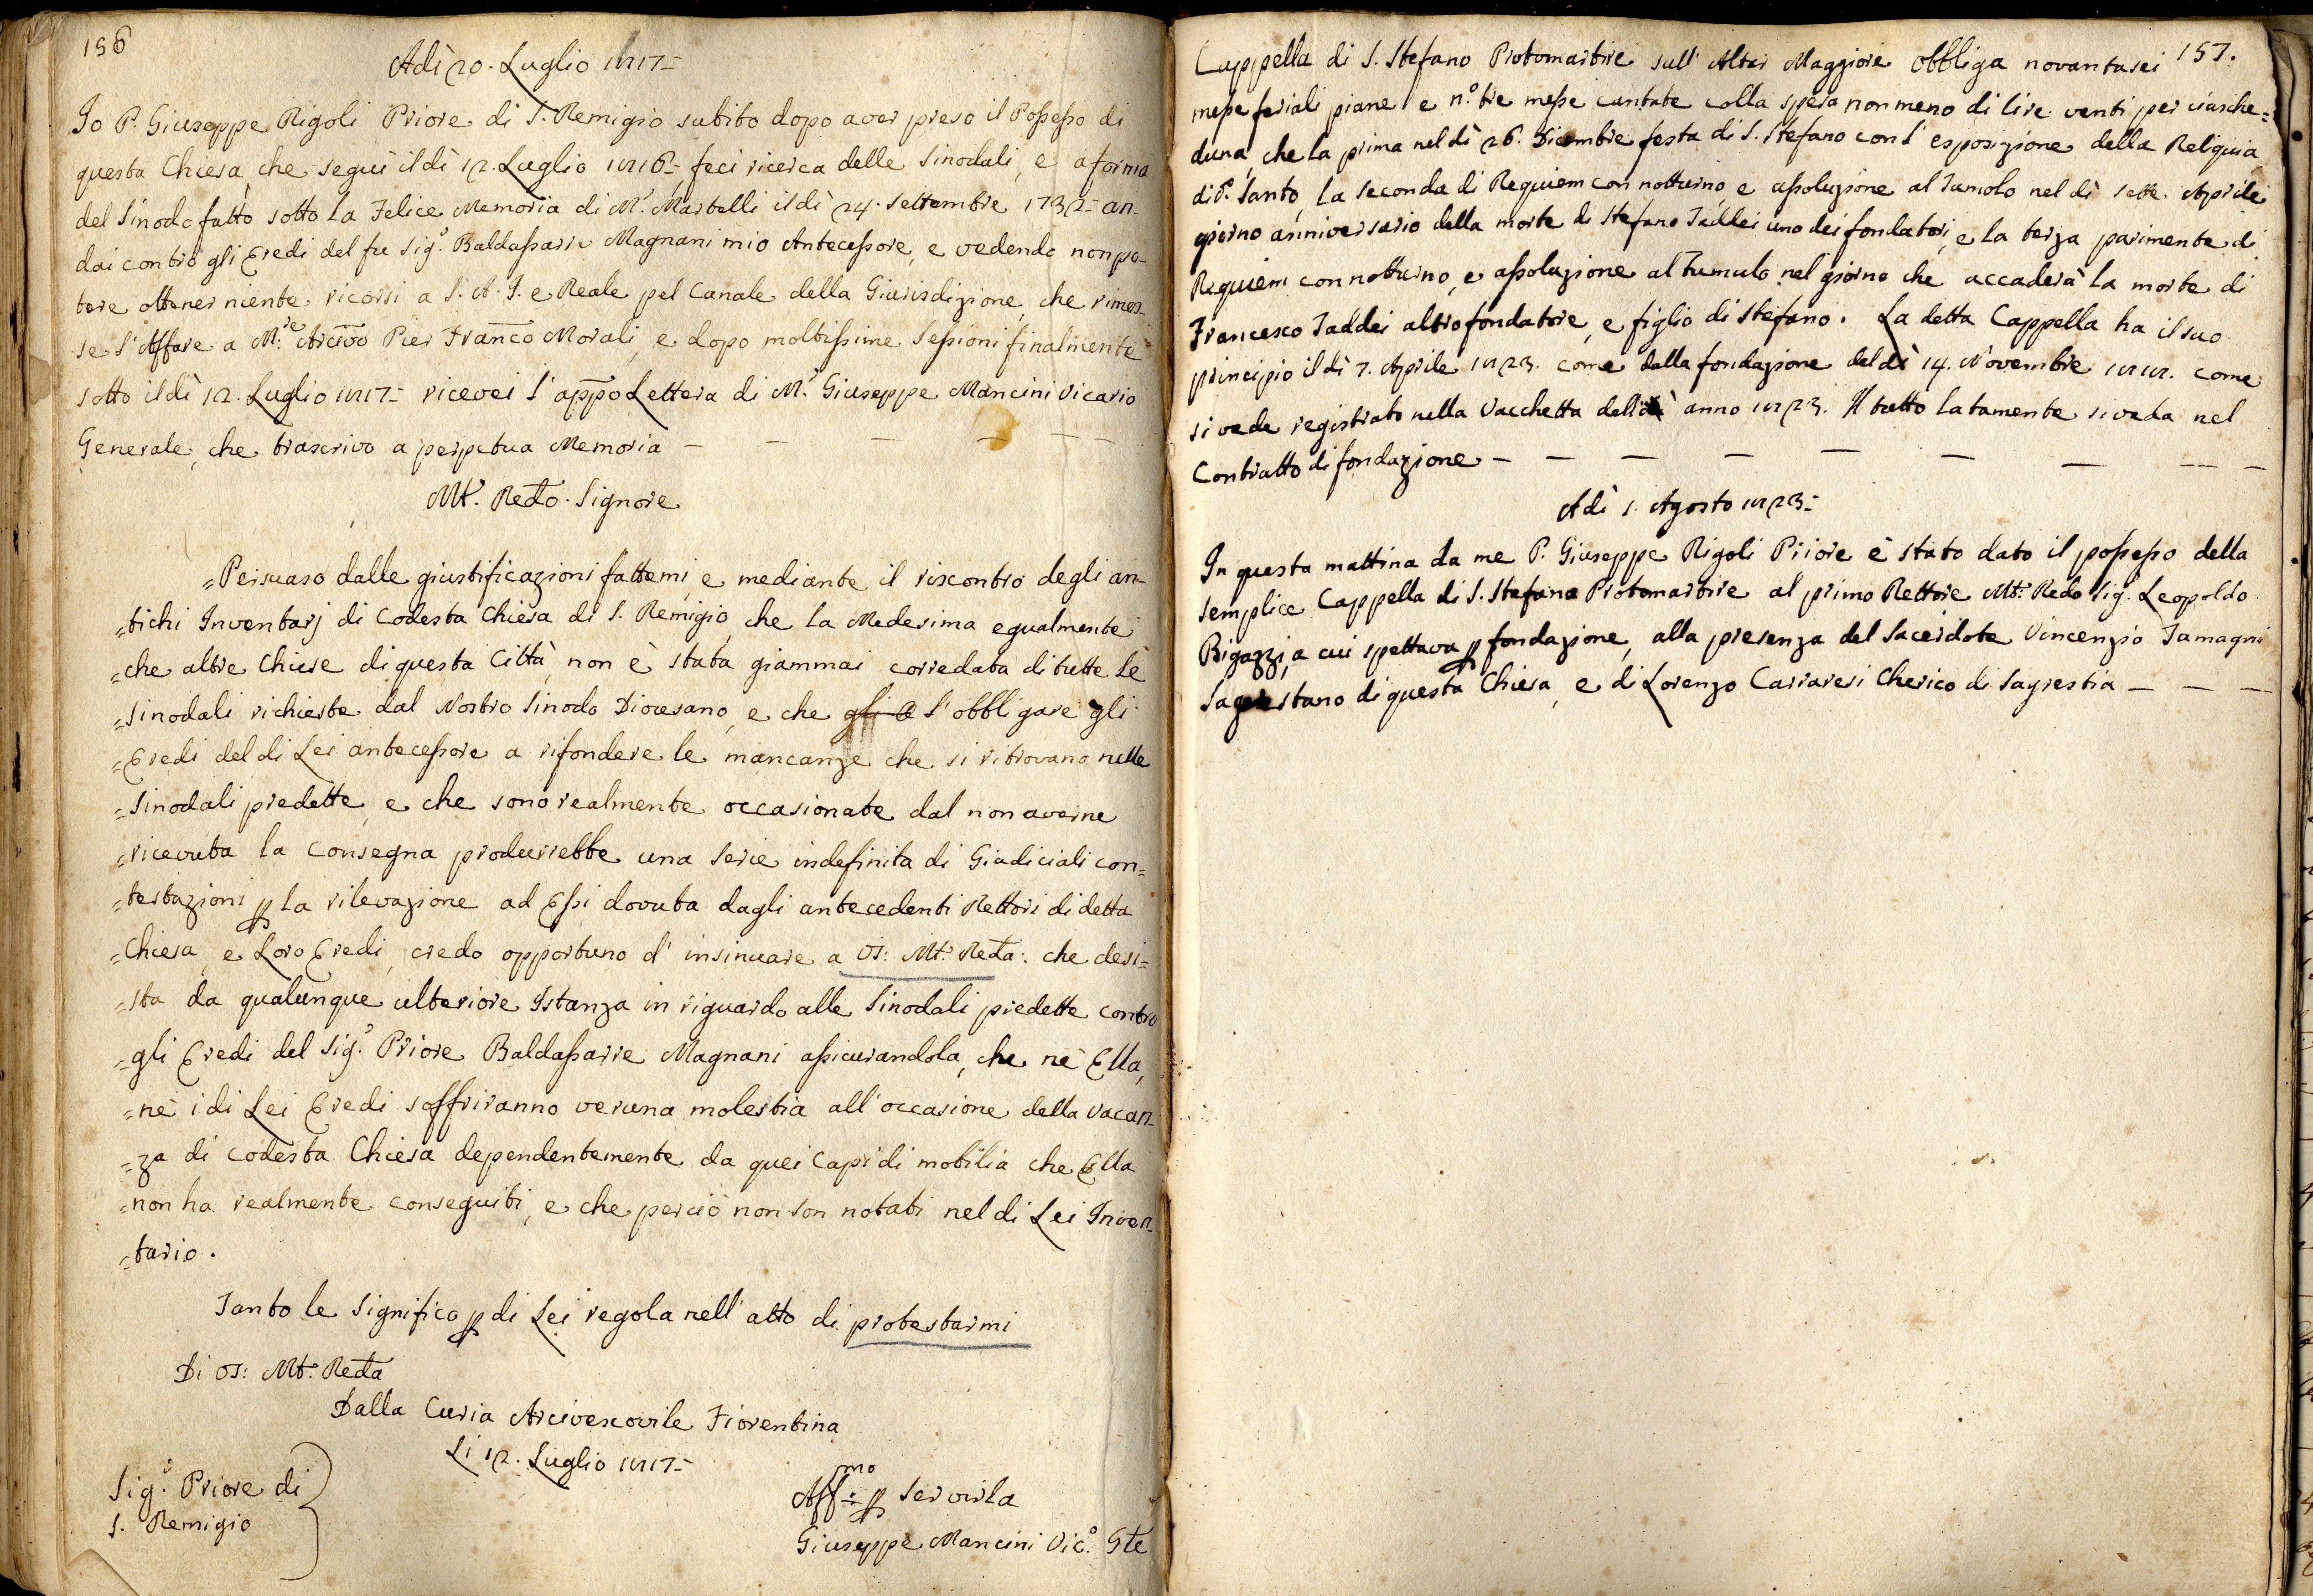 156
Adì 20. Luglio 1817-
Io P. Giuseppe Rigoli Priore di S. Remigio subito dopo aver preso il Possesso di
questa Chiesa, che seguì il dì 12. Luglio 1816-, feci ricerca delle Sinodali, e a forma
del Sinodo fatto sotto la Felice Memoria di M.r Martelli il dì 24. Settembre 1732- an-
dai contro gli Eredi del fu Sig.r Baldassarre Magnani mio Antecessore, e vedendo non po-
tere ottener niente ricorsi a S. A. I. e Reale pel Canale della Giurisdizione, che rimes-
se l'Affare a M.re Arcivo Pier Franco Morali, e dopo moltissime Sessioni finalmente
sotto il dì 12. Luglio 1817- ricevei l'appo Lettera di M.r Giuseppe Mancini Vicario
Generale, che trascrivo a perpetua Memoria - - - - - -
Mt.o Redo. Signore
=Persuaso dalle giustificazioni fattemi, e mediante il riscontro degli an-
=tichi Inventarj di Codesta Chiesa di S. Remigio, che la Medesima egualmente
=che altre Chiese di questa Città, non è stata giammai corredata di tutte le
=Sinodali richieste dal Nostro Sinodo Diocesano, e che gli l'obbligare gli
=Eredi del di Lei antecessore a rifondere le mancanze che si ritrovano nelle
=Sinodali predette, e che sono realmente occasionate dal non averne
=ricevuta la consegna produrrebbe una serie indefinita di Giudiciali con=
=testazioni p la rilevazione ad Essi dovuta dagli antecedenti Rettori di detta
=Chiesa, e Loro Eredi, credo opportuno d'insinuare a VS: Mt.o Reda: che desi=
=sta da qualunque ulteriore Istanza in riguardo alle Sinodali predette contro
=gli Eredi del Sig.r Priore Baldassarre Magnani assicurandola, che nè Ella,
=nè i di Lei Eredi soffriranno veruna molestia all'occasione della Vacan-
=za di codesta Chiesa dependentemente da quei Capi di mobilia che Ella
=non ha realmente conseguiti, e che perciò non son notati nel di Lei Inven-
=tario.
Tanto le Significo p di Lei regola nell'atto di protestarmi
Di VS: Mt.o Reda
Dalla Curia Arcivescovile Fiorentina
Li 12. Luglio 1817-
Sig.r Priore di
S. Remigio
Aff.mo p Servirla
Giuseppe Mancini Vic.o Gle
157.
Cappella di S. Stefano Protomartire sull'Altar Maggiore Obbliga novantasei
messe feriali piane e n.o tre messe cantate colla spesa non meno di lire venti per ciasche=
duna, che la prima nel dì 26. Dicembre festa di S. Stefano con l'esposizione della Reliquia
di d.o Santo, la seconda di Requiem con notturno, e assoluzione al Tumolo nel dì sette Aprile
giorno anniversario della morte di Stefano Taddei uno dei fondatori, e la terza parimente di
Requiem con notturno, e assoluzione al Tumulo nel giorno che accaderà la morte di
Francesco Taddei altro fondatore, e figlio di Stefano. La detta Cappella ha il suo
principio il dì 7. Aprile 1823. come dalla fondazione del dì 14. Novembre 1818. come
si vede registrato nella Vacchetta dell' anno 1823. Il tutto latamente si veda nel
Contratto di fondazione - - - - - - - - -
Adì 1. Agosto 1823-
In questa mattina da me P. Giuseppe Rigoli Priore è stato dato il possesso della
semplice Cappella di S. Stefano Protomartire al primo Rettore Mt.o Redo Sig.r Leopoldo
Bigazzi, a cui spettava p fondazione, alla presenza del Sacerdote Vincenzio Tamagni
Sagrestano di questa Chiesa, e di Lorenzo Carraresi Cherico di Sagrestia - - -